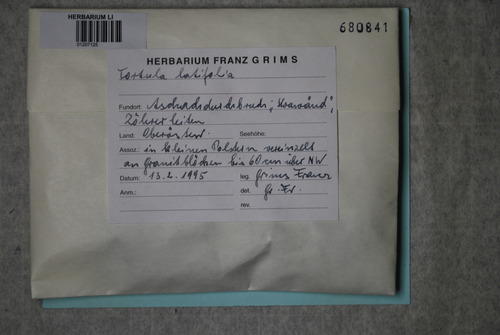 HERBARIUM LI
01207125
680841
HERBARIUM FRANZ GRIMS
Tortula latifolia
Fundort: Aschachdurchbruch,
leiten
Land: Oberösterr. Seehöhe:
Assoz.: in kleinen Polstern vereinzelt
an Granitblöcken bis 60 cm über NW
Datum: 13.2.1995 leg. Grims Franz
Anm.: det. Gr. Fr.
rev.